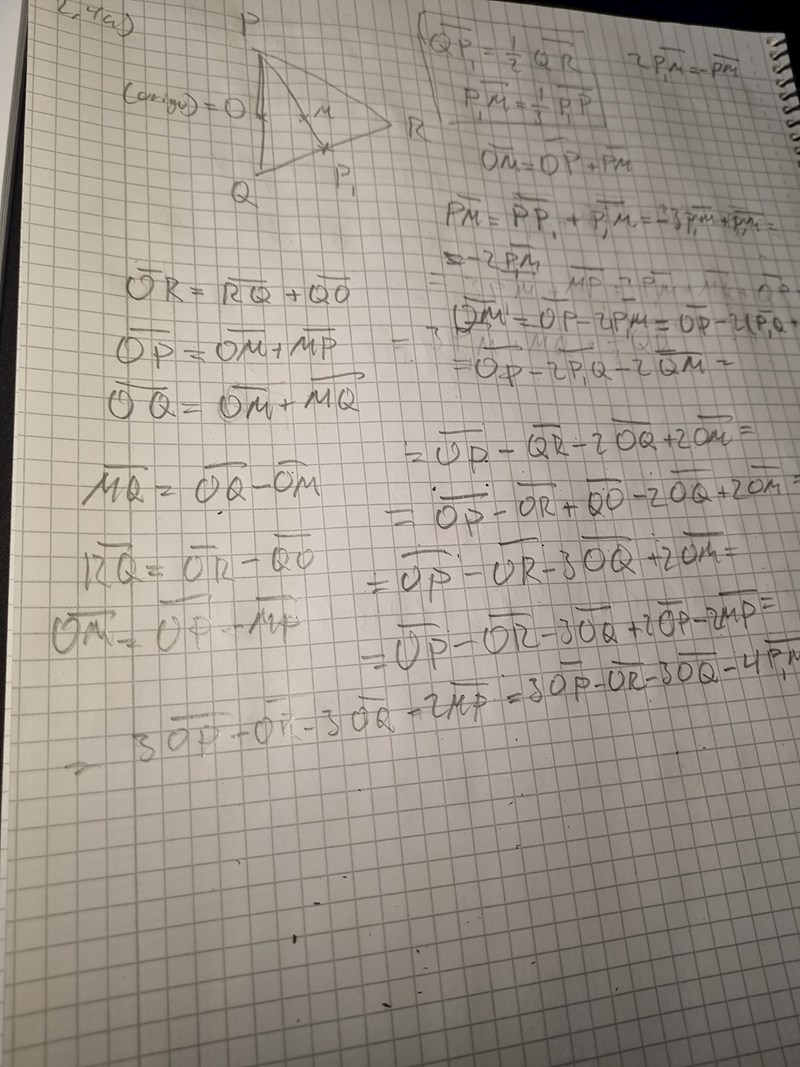 2.4a)
P
(origo) = O
M
R
Q
P₁
\overline{QP₁} = \frac{1}{2} \overline{QR}
2\overline{P₁M} = -\overline{PM}
\overline{P₁M} = \frac{1}{3} \overline{P₁P}
\overline{OM} = \overline{OP} + \overline{PM}
\overline{PM} = \overline{PP₁} + \overline{P₁M} = -3\overline{P₁M} + \overline{P₁M} =
= -2\overline{P₁M}
\overline{OM} = \overline{OP} - 2\overline{P₁M} = \overline{OP} - 2(\overline{P₁Q} +
= \overline{OP} - 2\overline{P₁Q} - 2\overline{QM} =
= \overline{OP} - \overline{QR} - 2\overline{OQ} + 2\overline{OM} =
= \overline{OP} - \overline{OR} + \overline{QO} - 2\overline{OQ} + 2\overline{OM} =
= \overline{OP} - \overline{OR} - 3\overline{OQ} + 2\overline{OM} =
= \overline{OP} - \overline{OR} - 3\overline{OQ} + 2\overline{OP} - 2\overline{MP} =
\overline{OR} = \overline{RQ} + \overline{QO}
\overline{OP} = \overline{OM} + \overline{MP}
\overline{OQ} = \overline{OM} + \overline{MQ}
\overline{MQ} = \overline{OQ} - \overline{OM}
\overline{RQ} = \overline{OR} - \overline{QO}
\overline{OM} = \overline{OP} - \overline{MP}
= 3\overline{OP} - \overline{OR} - 3\overline{OQ} - 2\overline{MP} = 3\overline{OP} - \overline{OR} - 3\overline{OQ} - 4\overline{P₁M}